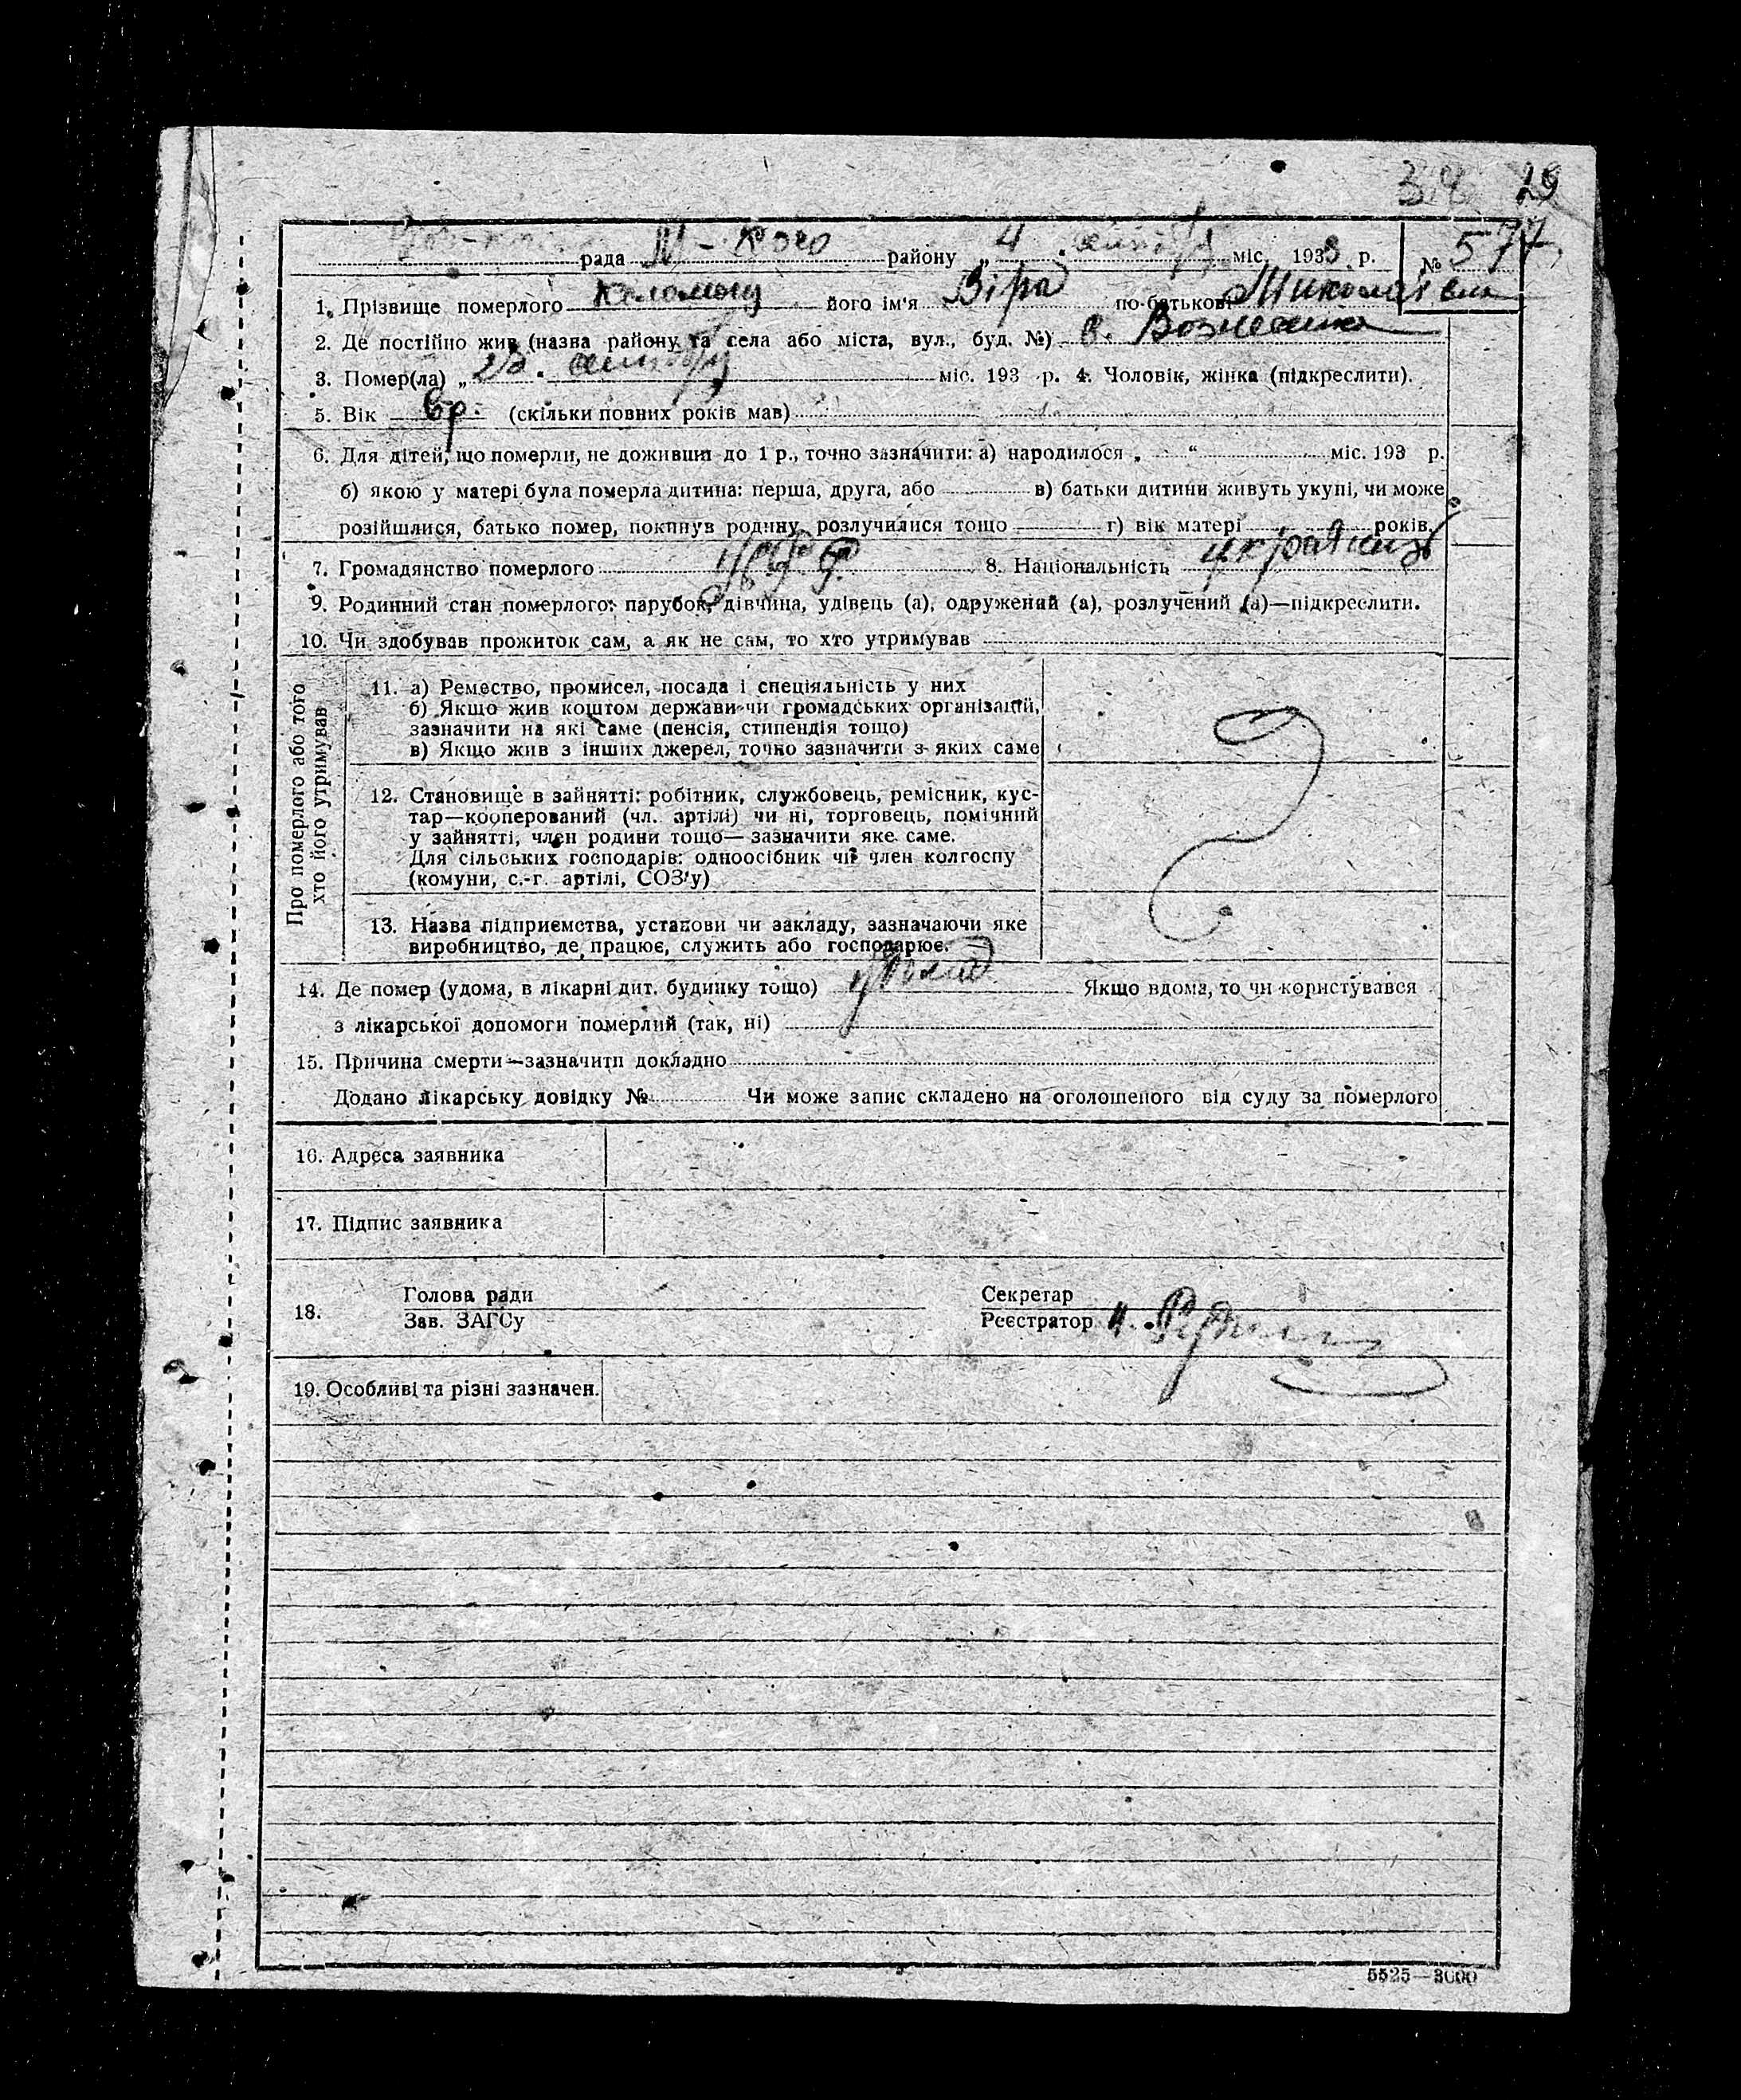 29
рада М - кого району „ 4 " міс. 1933 р. № 577
1. Прізвище померлого його ім'я Віра по-батькові Миколаївна
2. Де постійно жив (назва району та села або міста, вул., буд. №) с. Вознесенка
3. Помер(ла) „ міс. 193 р. 4. Чоловік, жінка (підкреслити).
5. Вік 6р. (скільки повних років мав)
6. Для дітей, що померли, не доживши до 1 р., точно зазначити: а) народилося „ “ міс. 193 р.
б) якою у матері була померла дитина: перша, друга, або в) батьки дитини живуть укупі, чи може
розійшлися, батько помер, покинув родину, розлучилися тощо г) вік матері років.
7. Громадянство померлого 8. Національність
9. Родинний стан померлого: парубок, дівчина, удівець (а), одружений (а), розлучений (а)—підкреслити.
10. Чи здобував прожиток сам, а як не сам, то хто утримував
Про померлого або того
хто його утримував
11. а) Ремество, промисел, посада і спеціяльність у них
б) Якщо жив коштом держави чи громадських організацій,
зазначити на які саме (пенсія, стипендія тощо)
в) Якщо жив з інших джерел, точно зазначити з яких саме
12. Становище в зайнятті: робітник, службовець, ремісник, кус-
тар—кооперований (чл. артілі) чи ні, торговець, помічний
у зайнятті, член родини тощо—зазначити яке саме.
Для сільських господарів: одноосібник чи член колгоспу
(комуни, с.-г. артілі, СОЗ'у)
13. Назва підприємства, установи чи закладу, зазначаючи яке
виробництво, де працює, служить або господарює.
14. Де помер (удома, в лікарні дит. будинку тощо) Якщо вдома, то чи користувався
з лікарської допомоги померлий (так, ні)
15. Причина смерти—зазначити докладно
Додано лікарську довідку № Чи може запис складено на оголошеного від суду за померлого
16. Адреса заявника
17. Підпис заявника
18. Голова ради Секретар
Зав. ЗАГСу Реєстратор
19. Особливі та різні зазначен.
5525—3000